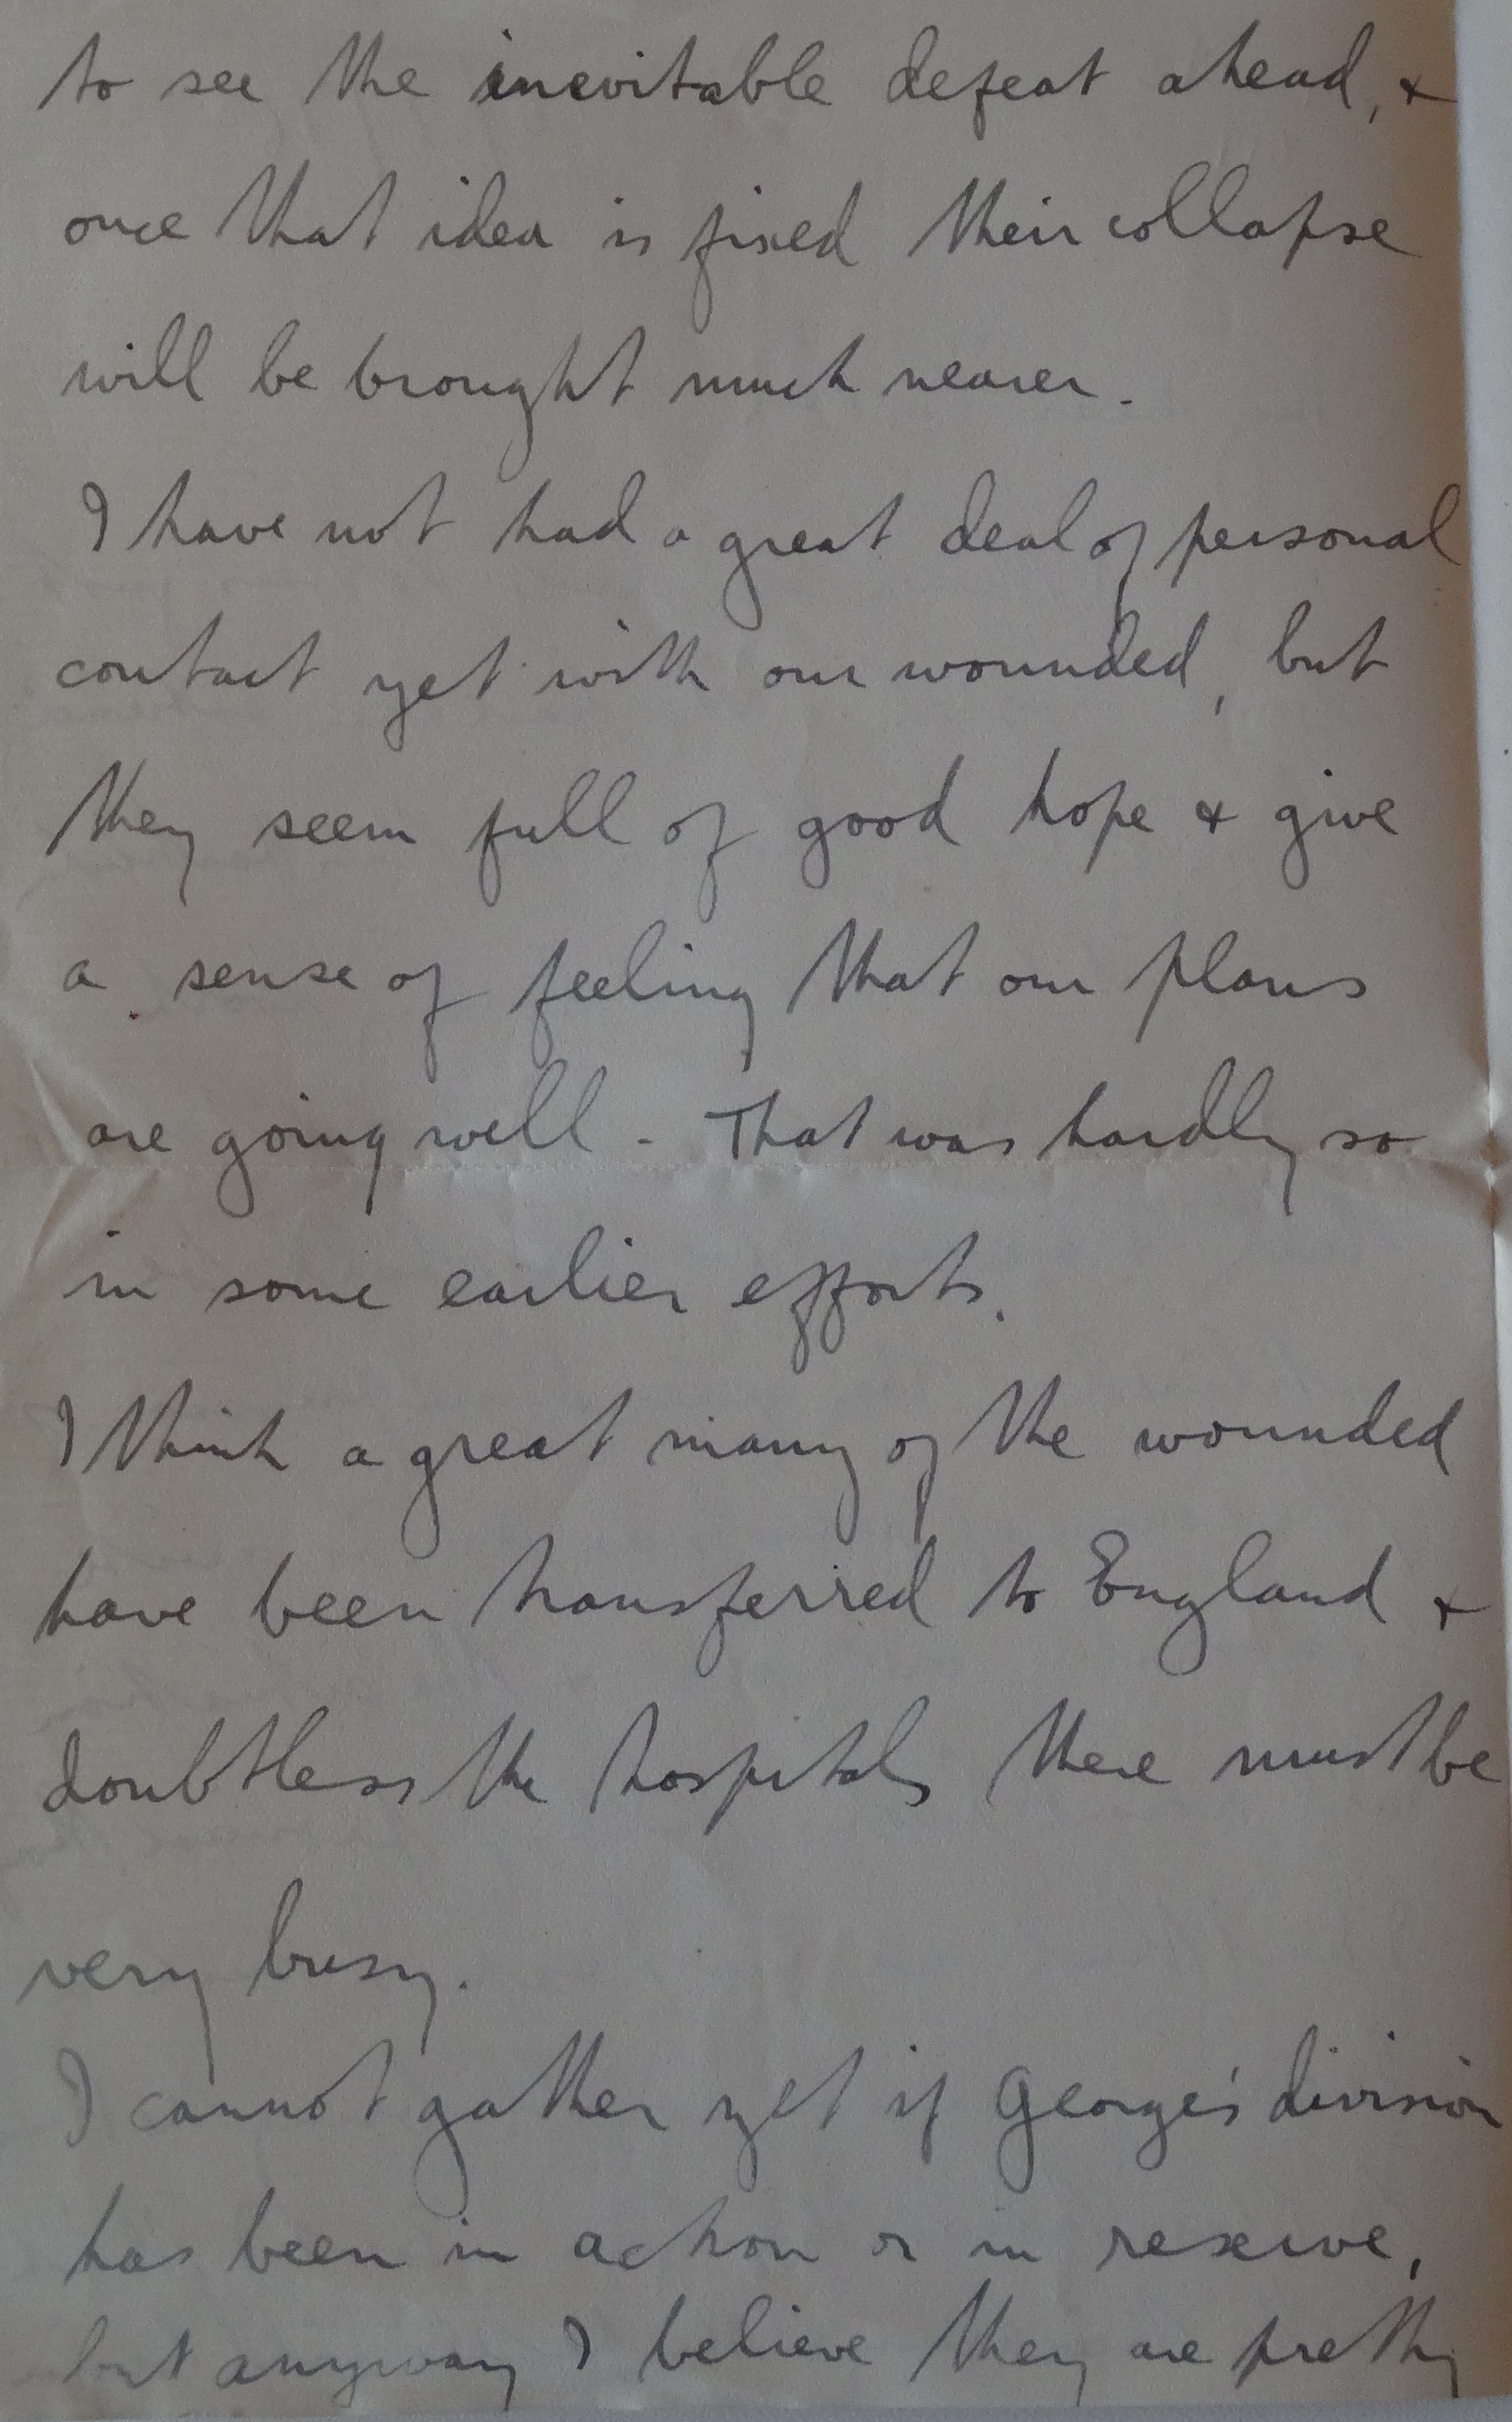 to see the inevitable defeat ahead, &
once that idea is fixed their collapse
will be brought much nearer.
I have not had a great deal of personal
contact yet with our wounded, but
they seem full of good hope & give
a sense of feeling that our plans
are going well - That was hardly so
in some earlier efforts.
I think a great many of the wounded
have been transferred to England &
doubtless the hospitals there must be
very busy.
I cannot gather yet if George's division
has been in action or in reserve,
but anyway I believe they are pretty